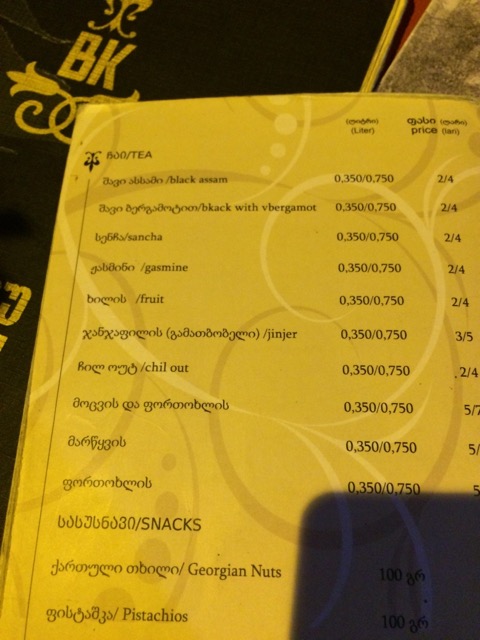 BK
(ლიტრი) ფასი (ლარი)
(Liter) price (lari)
ჩაი/TEA
შავი ასსამი /black assam 0,350/0,750 2/4
შავი ბერგამოტით/bkack with vbergamot 0,350/0,750 2/4
სენჩა/sancha 0,350/0,750 2/4
ჟასმინი /gasmine 0,350/0,750 2/4
ხილის /fruit 0,350/0,750 2/4
ჯანჯაფილის (გამათბობელი) /jinjer 0,350/0,750 3/5
ჩილ ოუტ /chil out 0,350/0,750 2/4
მოცვის და ფორთოხლის 0,350/0,750 5/7
მარწყვის 0,350/0,750 5/
ფორთოხლის 0,350/0,750 5
სასუსნავი/SNACKS
ქართული თხილი/ Georgian Nuts 100 გრ
ფისტაშკა/ Pistachios 100 გრ